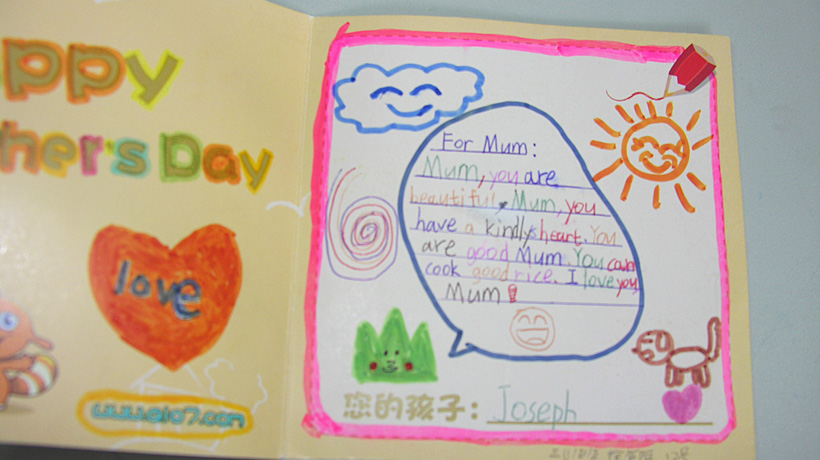 ppy
her's Day
love
www.elo7.com
For Mum:
Mum, you are
beautiful, Mum, you
have a kindly heart. You
are good Mum. You can
cook good rice. I love you,
Mum!
您的孩子: Joseph